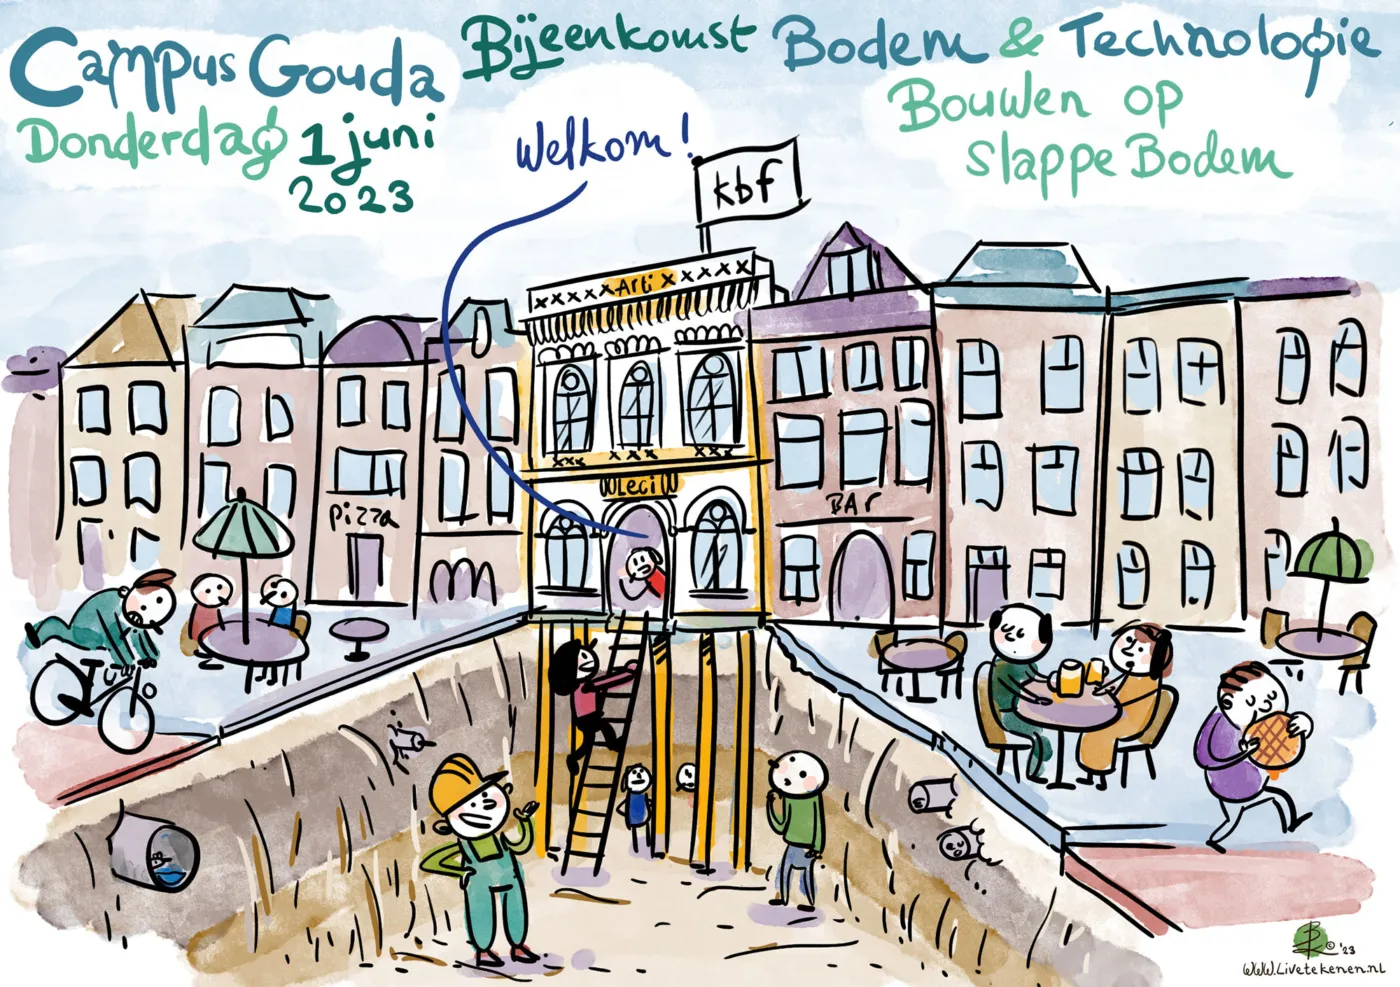 Campus Gouda
Donderdag 1 juni
2023
Bijeenkomst Bodem & Technologie
Bouwen op
slappe Bodem
Welkom!
kbf
xxxxxx Arti xxxxxx
Legi
pizza
BAr
© '23
www.Livetekenen.nl